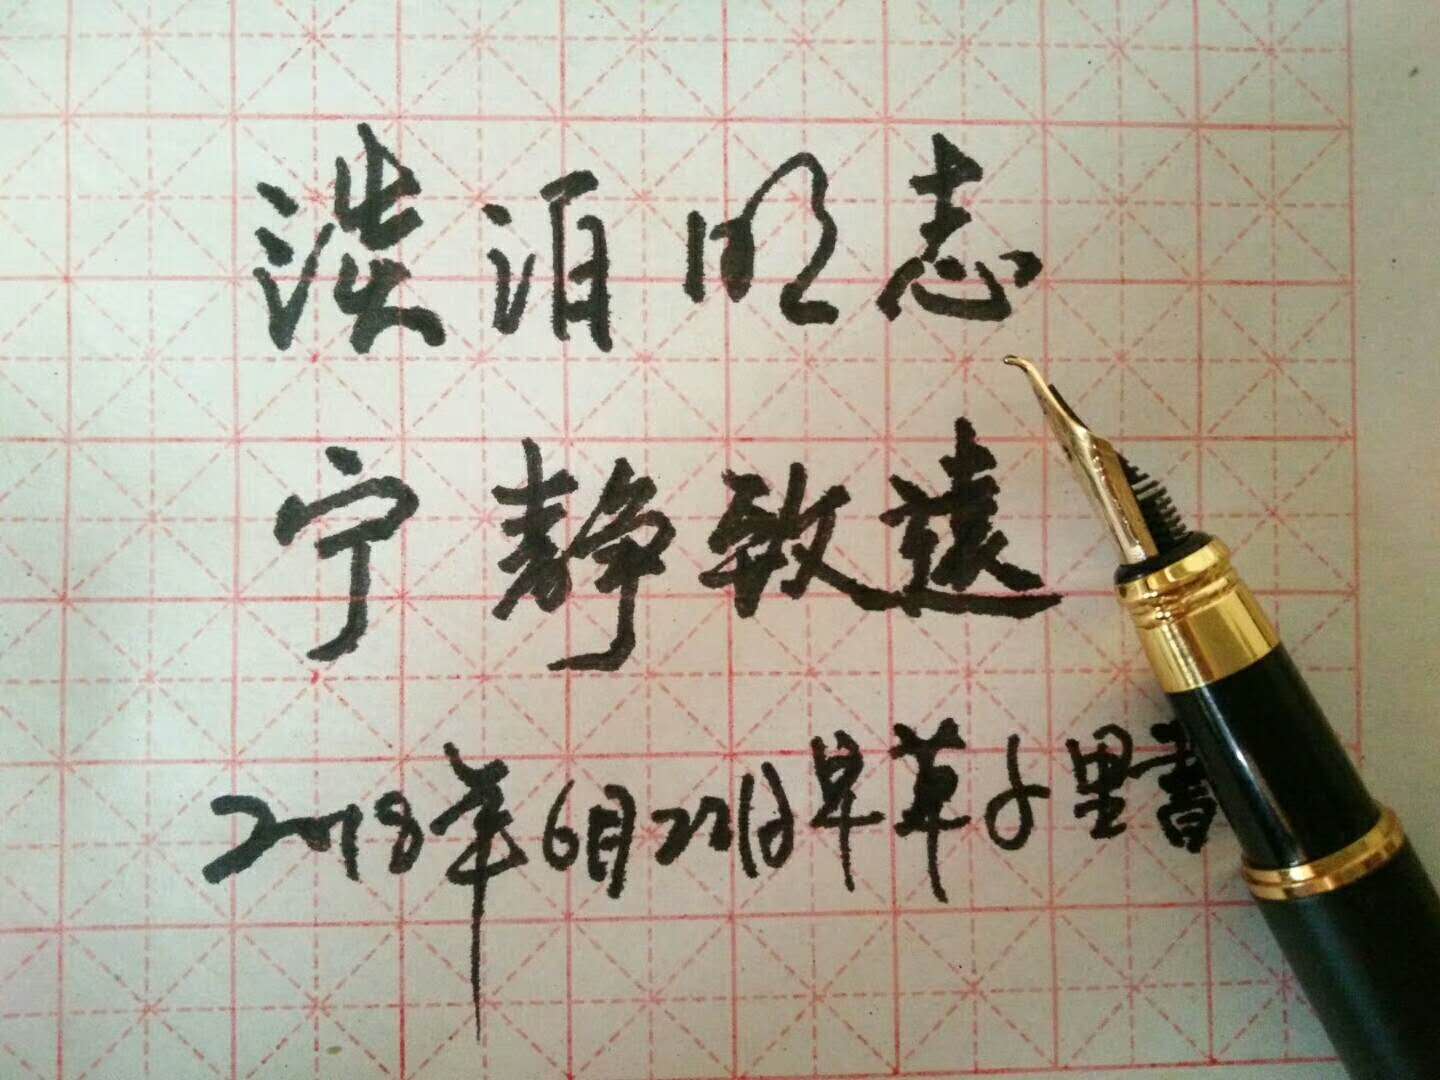 淡泊明志
宁静致遠
2018年6月22日早草子里書